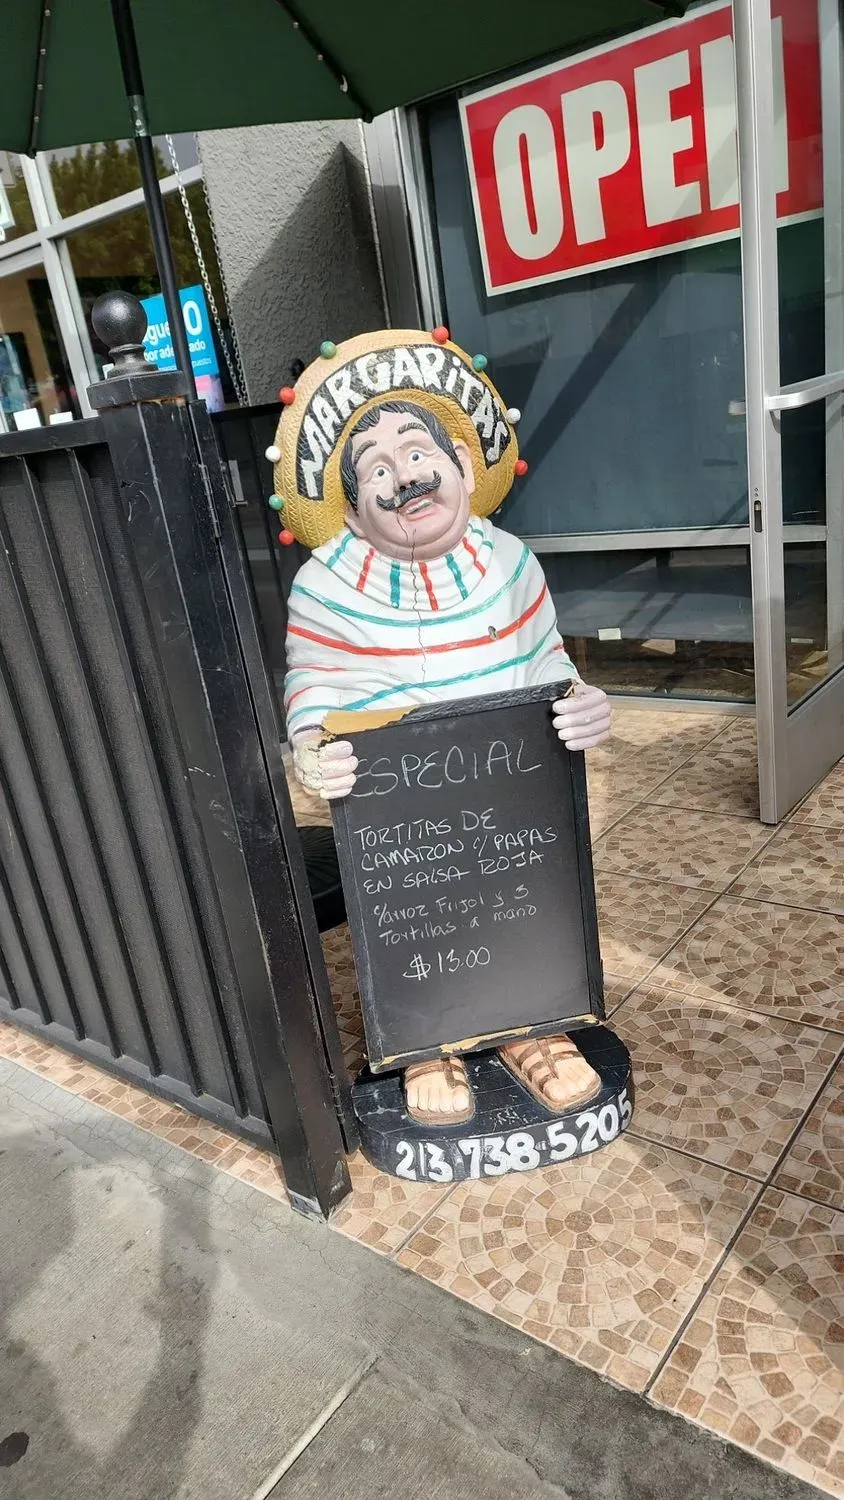 OPEN
MARGARITAS
ESPECIAL
TORTITAS DE
CAMARON c/ PAPAS
EN SALSA ROJA
c/arroz Frijol y 3
Tortillas a mano
$13.00
213 738-5205